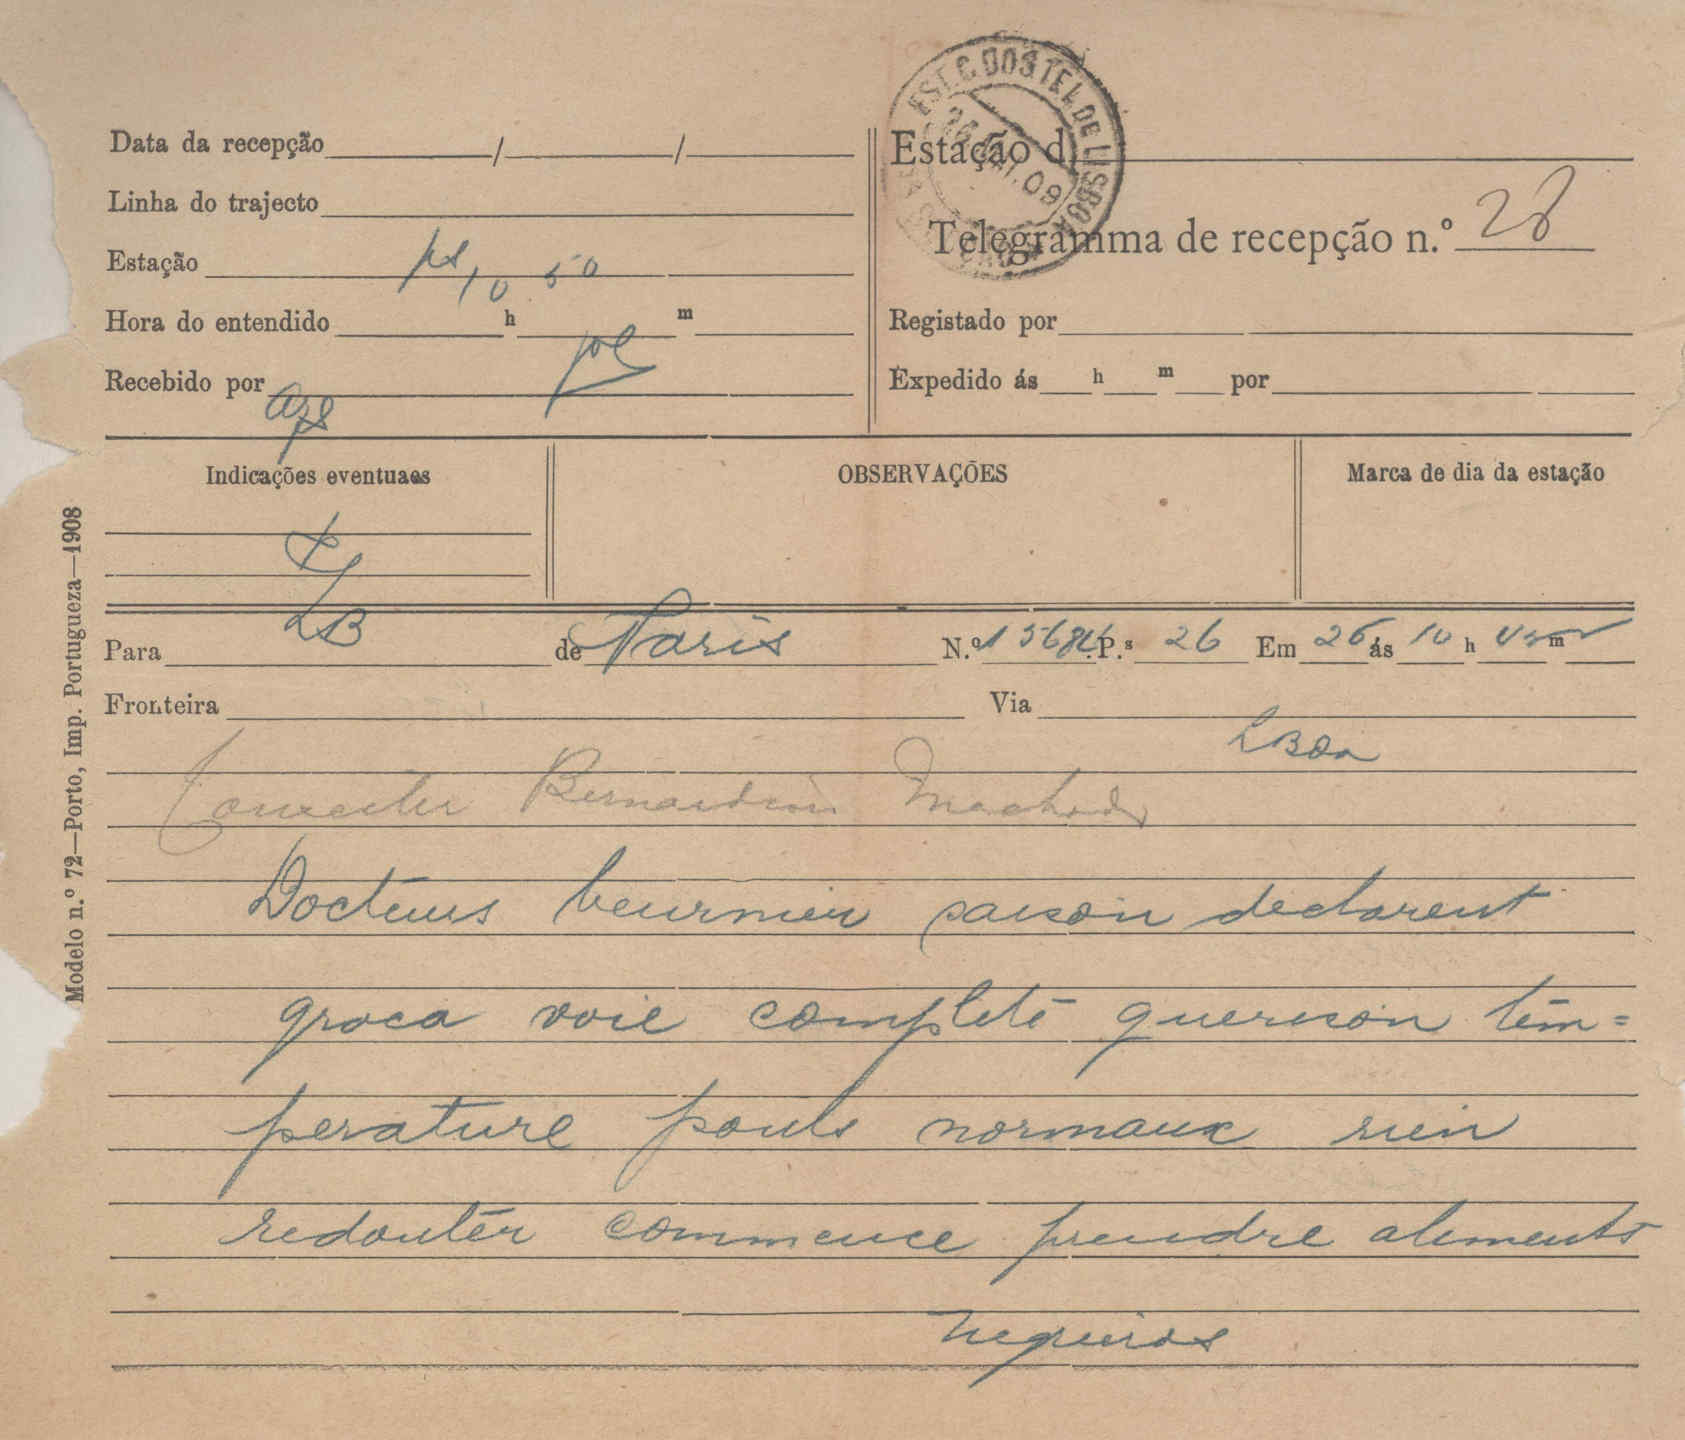 EST. C. DOS TEL. DE LISBOA
Data da recepção / /
Estação d
Linha do trajecto
Telegramma de recepção n.º 28
Estação ps 10 50
Hora do entendido h m
Registado por
Recebido por
Expedido ás h m por
Indicações eventuaes
OBSERVAÇÕES
Marca de dia da estação
Modelo n.º 72—Porto, Imp. Portugueza—1908
Para LB de Paris N.º P.s 26 Em 26 ás 10 h m
Fronteira Via
LBOa
Bernardino Machado
Docteurs beurnier saison declarent
groca voie complete guerison tem=
perature pouls normaux rien
redouter commence prendre aliments
Negreiros